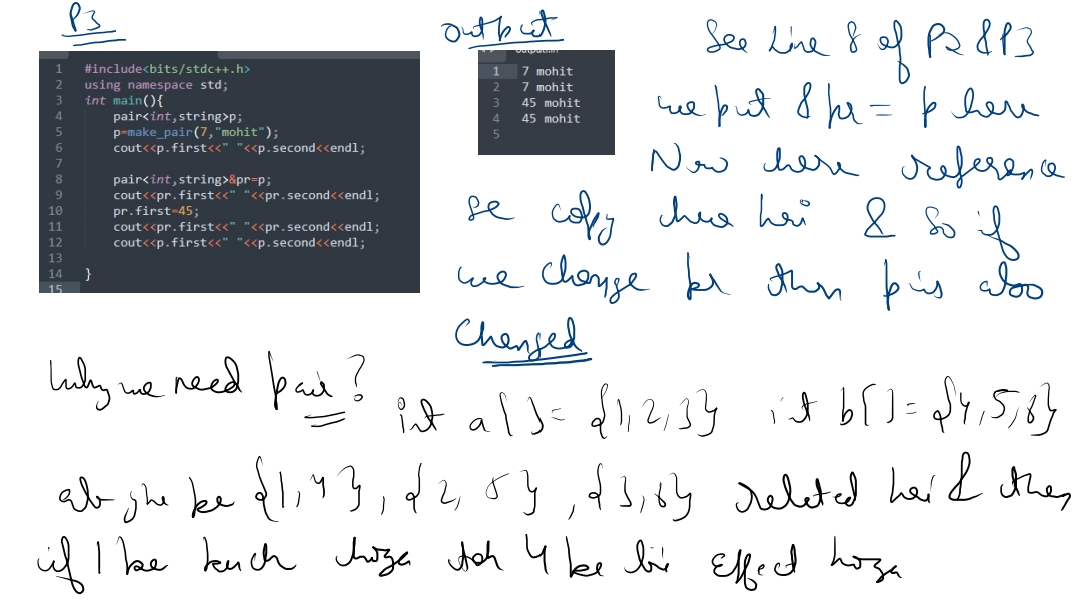 P3
1 #include<bits/stdc++.h>
2 using namespace std;
3 int main(){
4 pair<int,string>p;
5 p=make_pair(7,"mohit");
6 cout<<p.first<<" "<<p.second<<endl;
7
8 pair<int,string>&pr=p;
9 cout<<pr.first<<" "<<pr.second<<endl;
10 pr.first=45;
11 cout<<pr.first<<" "<<pr.second<<endl;
12 cout<<p.first<<" "<<p.second<<endl;
13
14 }
15
Output
1 7 mohit
2 7 mohit
3 45 mohit
4 45 mohit
5
See Line 8 of P2 & P3
we put & pr = p here
Now here reference
se copy hua hai & so if
we change pr then p is also
Changed
Why we need pair?
int a[] = {1,2,3} int b[] = {4,5,6}
ab ye ke {1,4}, {2,5}, {3,6} related hai & then
if 1 ke kuch hoga toh 4 ke bhi effect hoga